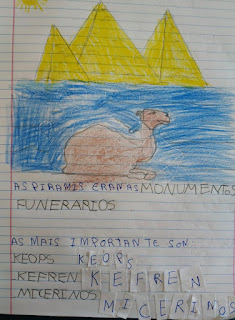 AS PIRAMIS ERAN AS MONUMENTOS
FUNERARIOS
AS MAIS IMPORTANTE SON
KEOPS KEOPS
KEFREN KEFREN
MICERINOS MICERINOS